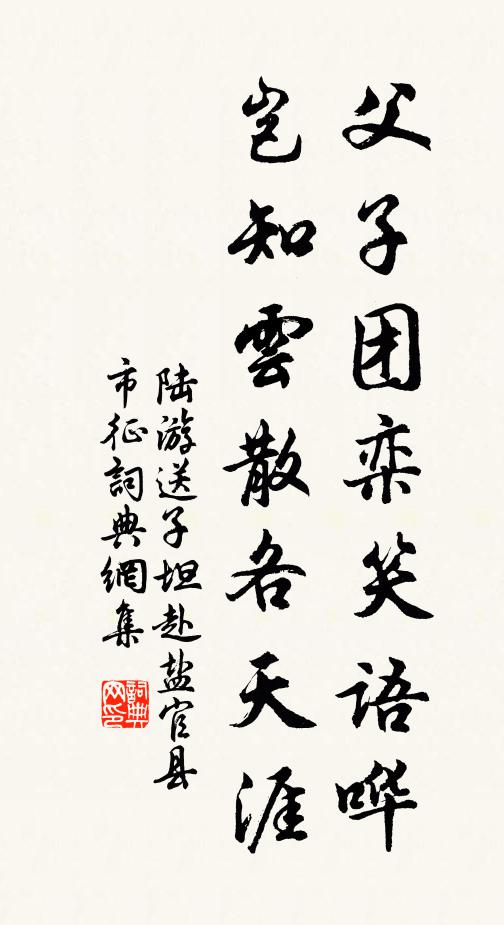 父子团栾笑语哗
岂知雲散各天涯
陆游送子坦赴盐官县
市征詞典網集
詞典网印